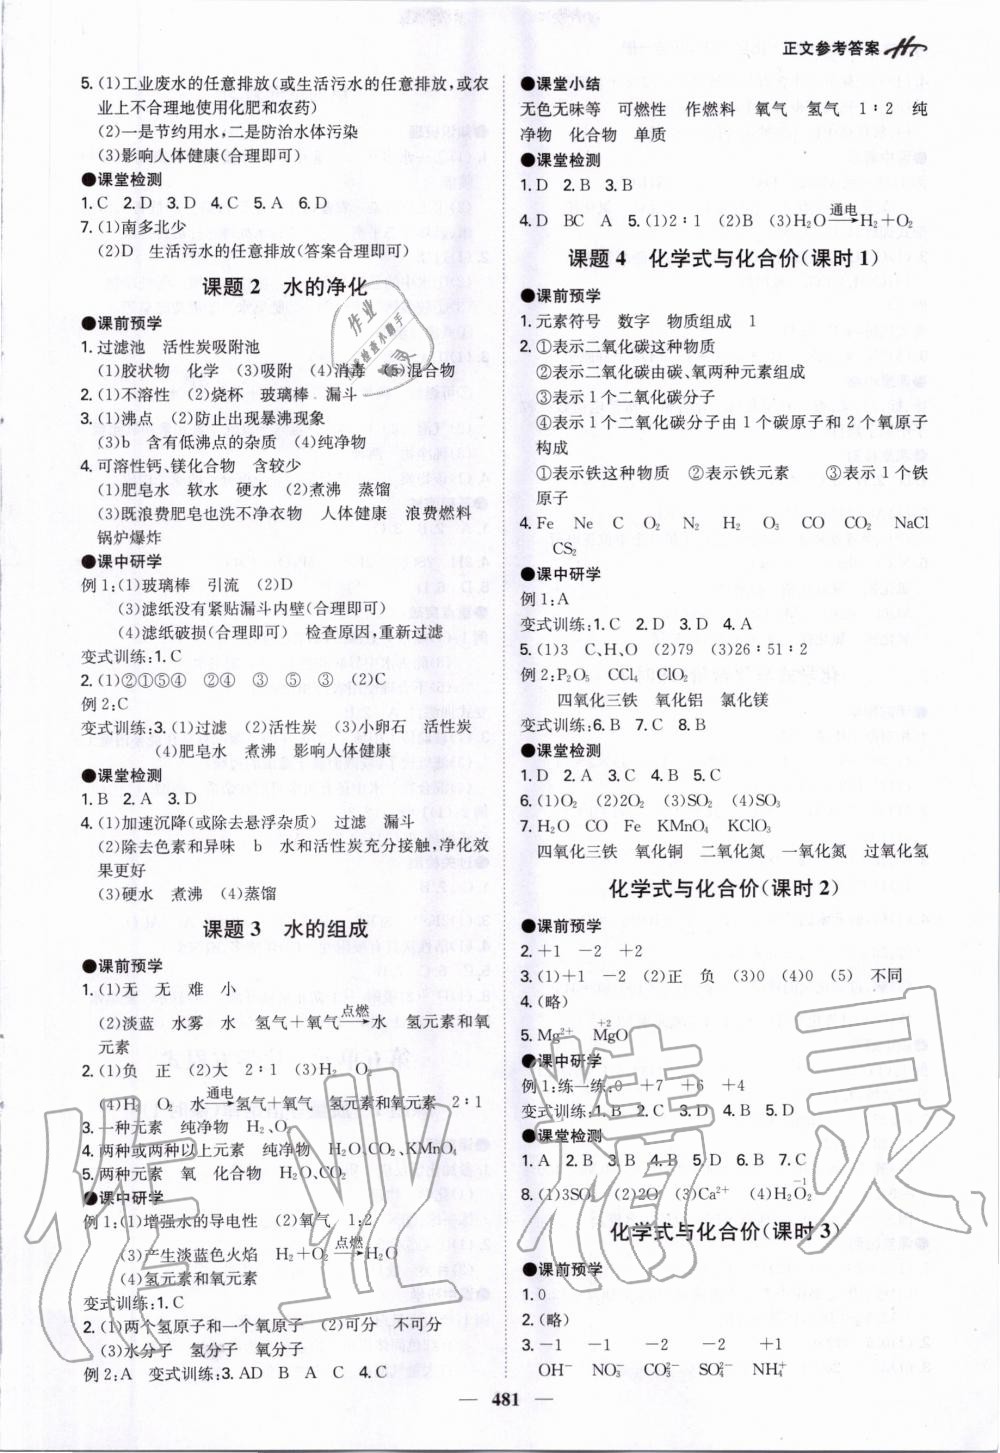 正文参考答案
5.(1)工业废水的任意排放(或生活污水的任意排放,或农
业上不合理地使用化肥和农药)
(2)一是节约用水,二是防治水体污染
(3)影响人体健康(合理即可)
●课堂检测
1.C 2.D 3.D 4.C 5.A 6.D
7.(1)南多北少
(2)D 生活污水的任意排放(答案合理即可)
课题2 水的净化
●课前预学
1.过滤池 活性炭吸附池
(1)胶状物 化学 (3)吸附 (4)消毒 (5)混合物
2.(1)不溶性 (2)烧杯 玻璃棒 漏斗
3.(1)沸点 (2)防止出现暴沸现象
(3)b 含有低沸点的杂质 (4)纯净物
4.可溶性钙、镁化合物 含较少
(1)肥皂水 软水 硬水 (2)煮沸 蒸馏
(3)既浪费肥皂也洗不净衣物 人体健康 浪费燃料
锅炉爆炸
●课中研学
例1:(1)玻璃棒 引流 (2)D
(3)滤纸没有紧贴漏斗内壁(合理即可)
(4)滤纸破损(合理即可) 检查原因,重新过滤
变式训练:1.C
2.(1)②①⑤④ ②④ ③ ⑤ ③ (2)C
例2:C
变式训练:3.(1)过滤 (2)活性炭 (3)小卵石 活性炭
(4)肥皂水 煮沸 影响人体健康
●课堂检测
1.B 2.A 3.D
4.(1)加速沉降(或除去悬浮杂质) 过滤 漏斗
(2)除去色素和异味 b 水和活性炭充分接触,净化效
果更好
(3)硬水 煮沸 (4)蒸馏
课题3 水的组成
●课前预学
1.(1)无 无 难 小
(2)淡蓝 水雾 水 氢气+氧气—点燃→水 氢元素和氧
元素
2.(1)负 正 (2)大 2∶1 (3)H₂ O₂
(4)H O 水—通电→氢气+氧气 氢元素和氧元素 2∶1
3.一种元素 纯净物 H₂、O₂
4.两种或两种以上元素 纯净物 H₂O、CO₂、KMnO₄
5.两种元素 氧 化合物 H₂O、CO₂
●课中研学
例1:(1)增强水的导电性 (2)氧气 1:2
(3)产生淡蓝色火焰 H₂+O₂—点燃→H₂O
(4)氢元素和氧元素
变式训练:1.C
2.(1)两个氢原子和一个氧原子 (2)可分 不可分
(3)水分子 氢分子 氧分子
例2:A 变式训练:3.AD B A C 4.C
●课堂小结
无色无味等 可燃性 作燃料 氧气 氢气 1∶2 纯
净物 化合物 单质
●课堂检测
1.D 2.B 3.B
4.D BC A 5.(1)2∶1 (2)B (3)H₂O—通电→H₂+O₂
课题4 化学式与化合价(课时1)
●课前预学
1.元素符号 数字 物质组成 1
2.①表示二氧化碳这种物质
②表示二氧化碳由碳、氧两种元素组成
③表示1个二氧化碳分子
④表示1个二氧化碳分子由1个碳原子和2个氧原子
构成
①表示铁这种物质 ②表示铁元素 ③表示1个铁
原子
4.Fe Ne C O₂ N₂ H₂ O₃ CO CO₂ NaCl
CS₂
●课中研学
例1:A
变式训练:1.C 2.D 3.D 4.A
5.(1)3 C、H、O (2)79 (3)26∶51∶2
例2:P₂O₅ CCl₄ ClO₂
四氧化三铁 氧化铝 氯化镁
变式训练:6.B 7.C 8.B
●课堂检测
1.D 2.A 3.C 4.B 5.C
6.(1)O₂ (2)2O₂ (3)SO₂ (4)SO₃
7.H₂O CO Fe KMnO₄ KClO₃
四氧化三铁 氧化铜 二氧化氮 一氧化氮 过氧化氢
化学式与化合价(课时2)
●课前预学
2.+1 −2 +2
3.(1)+1 −2 (2)正 负 (3)0 (4)0 (5) 不同
4.(略)
5.Mg²⁺ M̊gO
●课中研学
例1:练一练:0 +7 +6 +4
变式训练:1.B 2.C 3.D 4.B 5.A
●课堂检测
1.A 2.B 3.B 4.B 5.D 6.B 7.C
8.(1)3SO₂ (2)2O (3)Ca²⁺ (4)H₂O₂
化学式与化合价(课时3)
●课前预学
1.0
2.(略)
3.−1 −1 −2 −2 +1
OH⁻ NO₃⁻ CO₃²⁻ SO₄²⁻ NH₄⁺
— 481 —
作业精灵